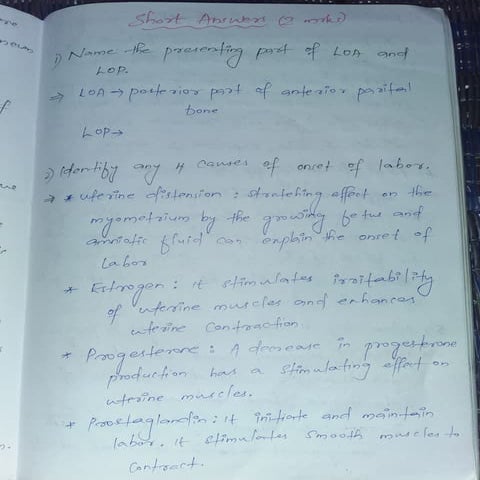 Short Answers (2 mrks)
1) Name the presenting part of LOA and
LOP.
⇒ LOA → posterior part of anterior parital
bone
LOP →
2) Identify any 4 causes of onset of labor.
⇒ * uterine distension : stretching effect on the
myometrium by the growing fetus and
amniotic fluid can explain the onset of
Labor
* Estrogen : it stimulates irritability
of uterine muscles and enhances
uterine contraction.
* Progesterone : A decrease in progesterone
production has a stimulating effect on
uterine muscles.
* Prostaglandin : it initiate and maintain
labor. it stimulates smooth muscles to
contract.